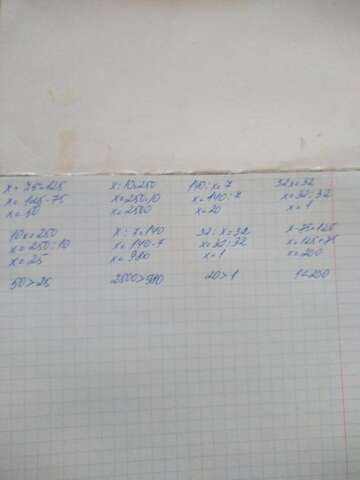 x + 75=125
x = 125-75
x = 50
x : 10=250
x=250·10
x = 2500
140 : x= 7
x = 140 : 7
x = 20
32x=32
x=32:32
x = 1
10x=250
x = 250:10
x = 25
x : 7=140
x= 140·7
x = 980
32 : x=32
x=32:32
x=1
x-75=125
x=125+75
x=200
50>25
2500>980
20>1
1<200